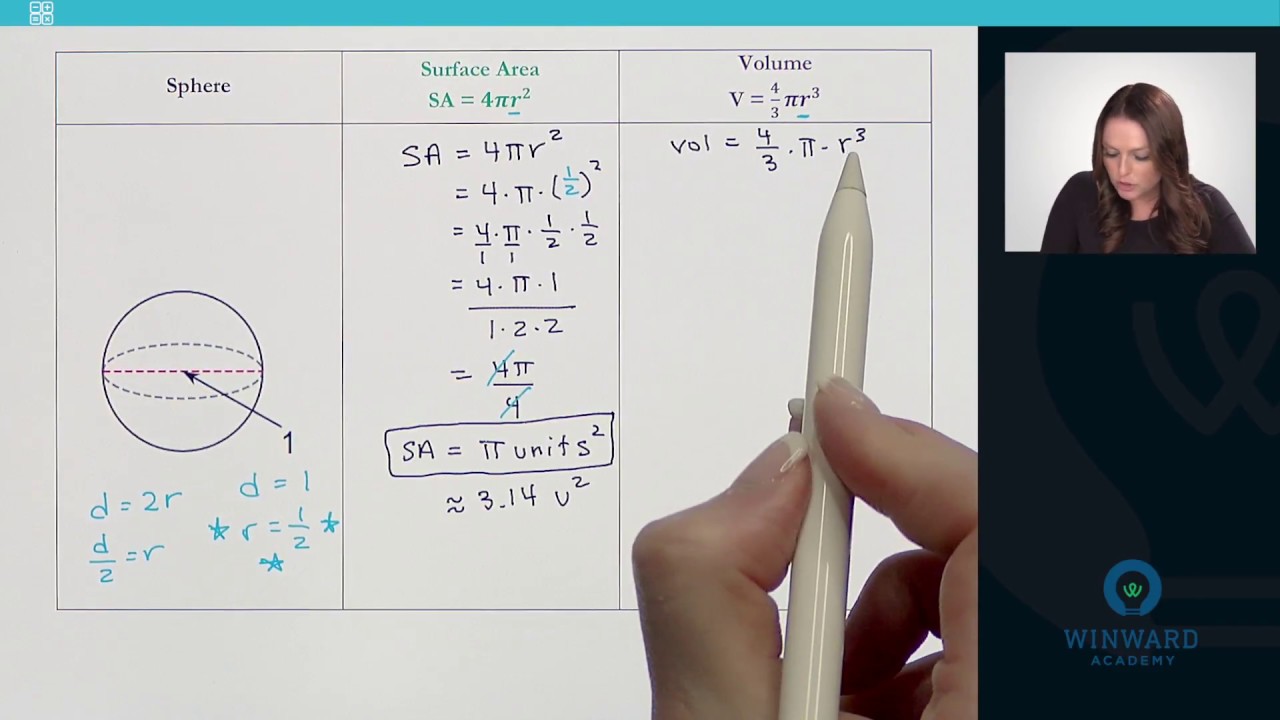 Sphere
Surface Area
SA = 4πr²
Volume
V = 4/3 πr³
1
d = 2r
d/2 = r
d = 1
* r = 1/2 *
*
SA = 4πr²
= 4 · π · (1/2)²
= 4/1 · π/1 · 1/2 · 1/2
= 4 · π · 1 / 1 · 2 · 2
= 4π/4
SA = π units²
≈ 3.14 u²
vol = 4/3 · π · r³
WINWARD
ACADEMY